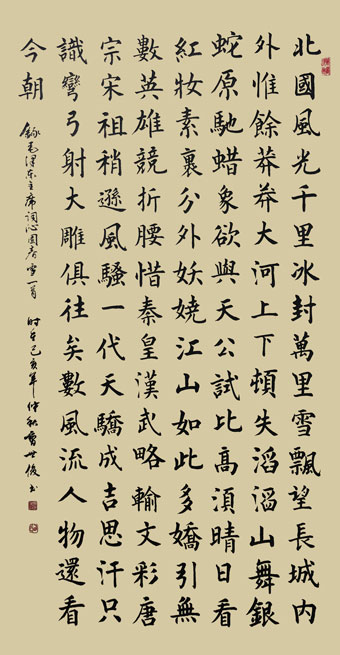 北國風光千里冰封萬里雪飄望長城内
外惟餘莽莽大河上下頓失滔滔山舞銀
蛇原馳蜡象欲與天公試比高湏晴日看
紅妝素裹分外妖嬈江山如此多嬌引無
數英雄競折腰惜秦皇漢武略輸文彩唐
宗宋祖稍遜風騷一代天驕成吉思汗只
識彎弓射大雕俱往矣數風流人物還看
今朝
錄毛澤东主席詞沁園春雪一首 时在己亥年仲秋曹世俊书